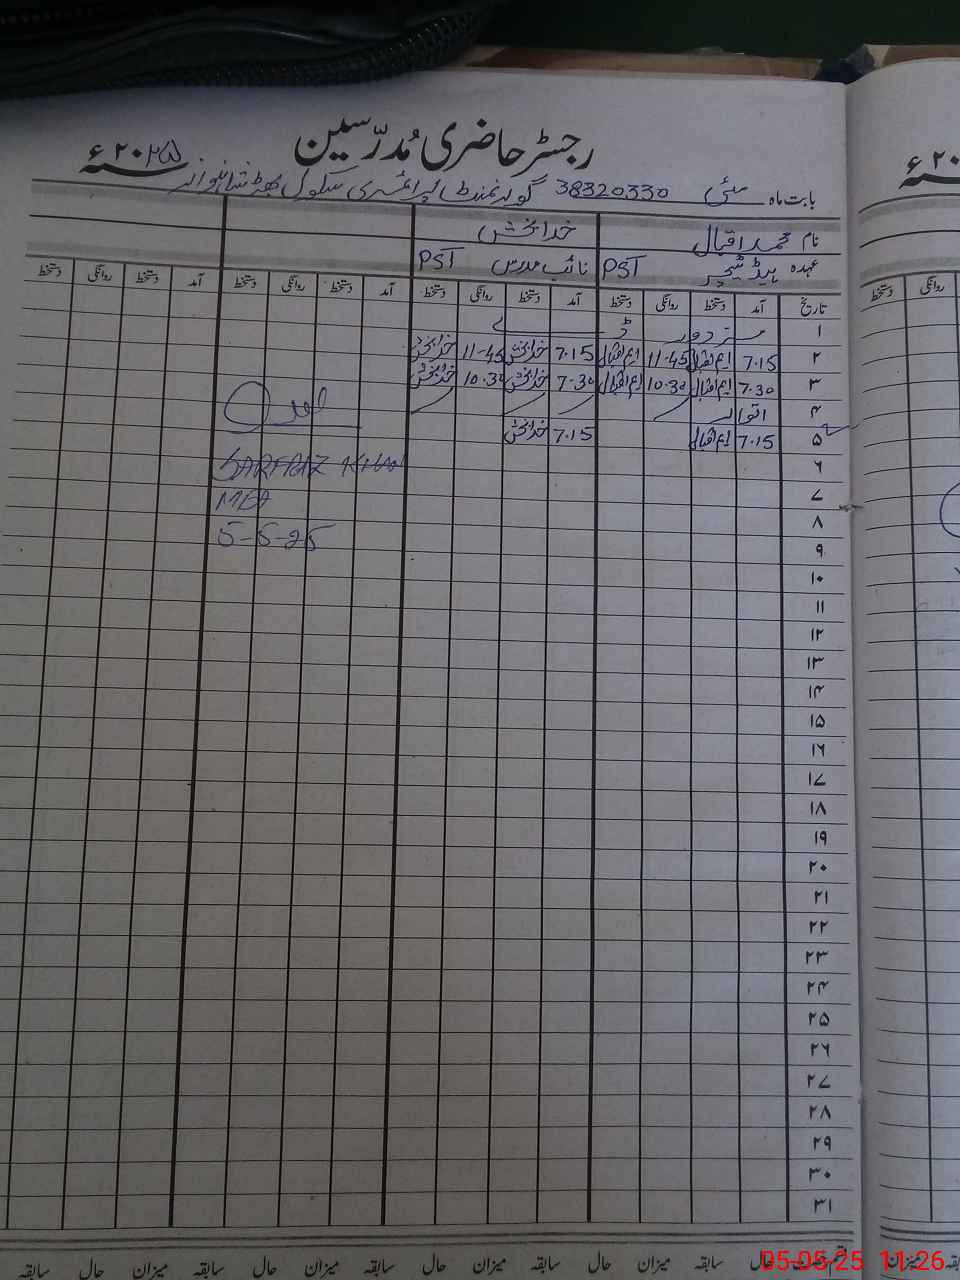 رجسٹر حاضری مُدرّسین سنہ ۲۰۲۵ء
بابت ماہ مئی 38320330 گورنمنٹ پرائمری سکول
نام محمد اقبال خدا بخش
عہدہ ہیڈ ٹیچر PST نائب مدرس PST
تاریخ آمد دستخط روانگی دستخط آمد دستخط روانگی دستخط آمد دستخط روانگی دستخط آمد دستخط روانگی دستخط
۱
۲ 7.15 ایم اقبال 11-45 ایم اقبال 7.15 خدا بخش 11-45 خدا بخش
۳ 7.30 ایم اقبال 10.30 ایم اقبال 7.30 خدا بخش 10.30 خدا بخش
۴ اتوار
۵ 7.15 ایم اقبال 7.15 خدا بخش
۶ SARFRAZ KHAN
۷ MEA
۸ 5-5-25
۹
۱۰
۱۱
۱۲
۱۳
۱۴
۱۵
۱۶
۱۷
۱۸
۱۹
۲۰
۲۱
۲۲
۲۳
۲۴
۲۵
۲۶
۲۷
۲۸
۲۹
۳۰
۳۱
سابقہ حال میزان سابقہ حال میزان سابقہ حال میزان سابقہ حال
05-05-25 11:26